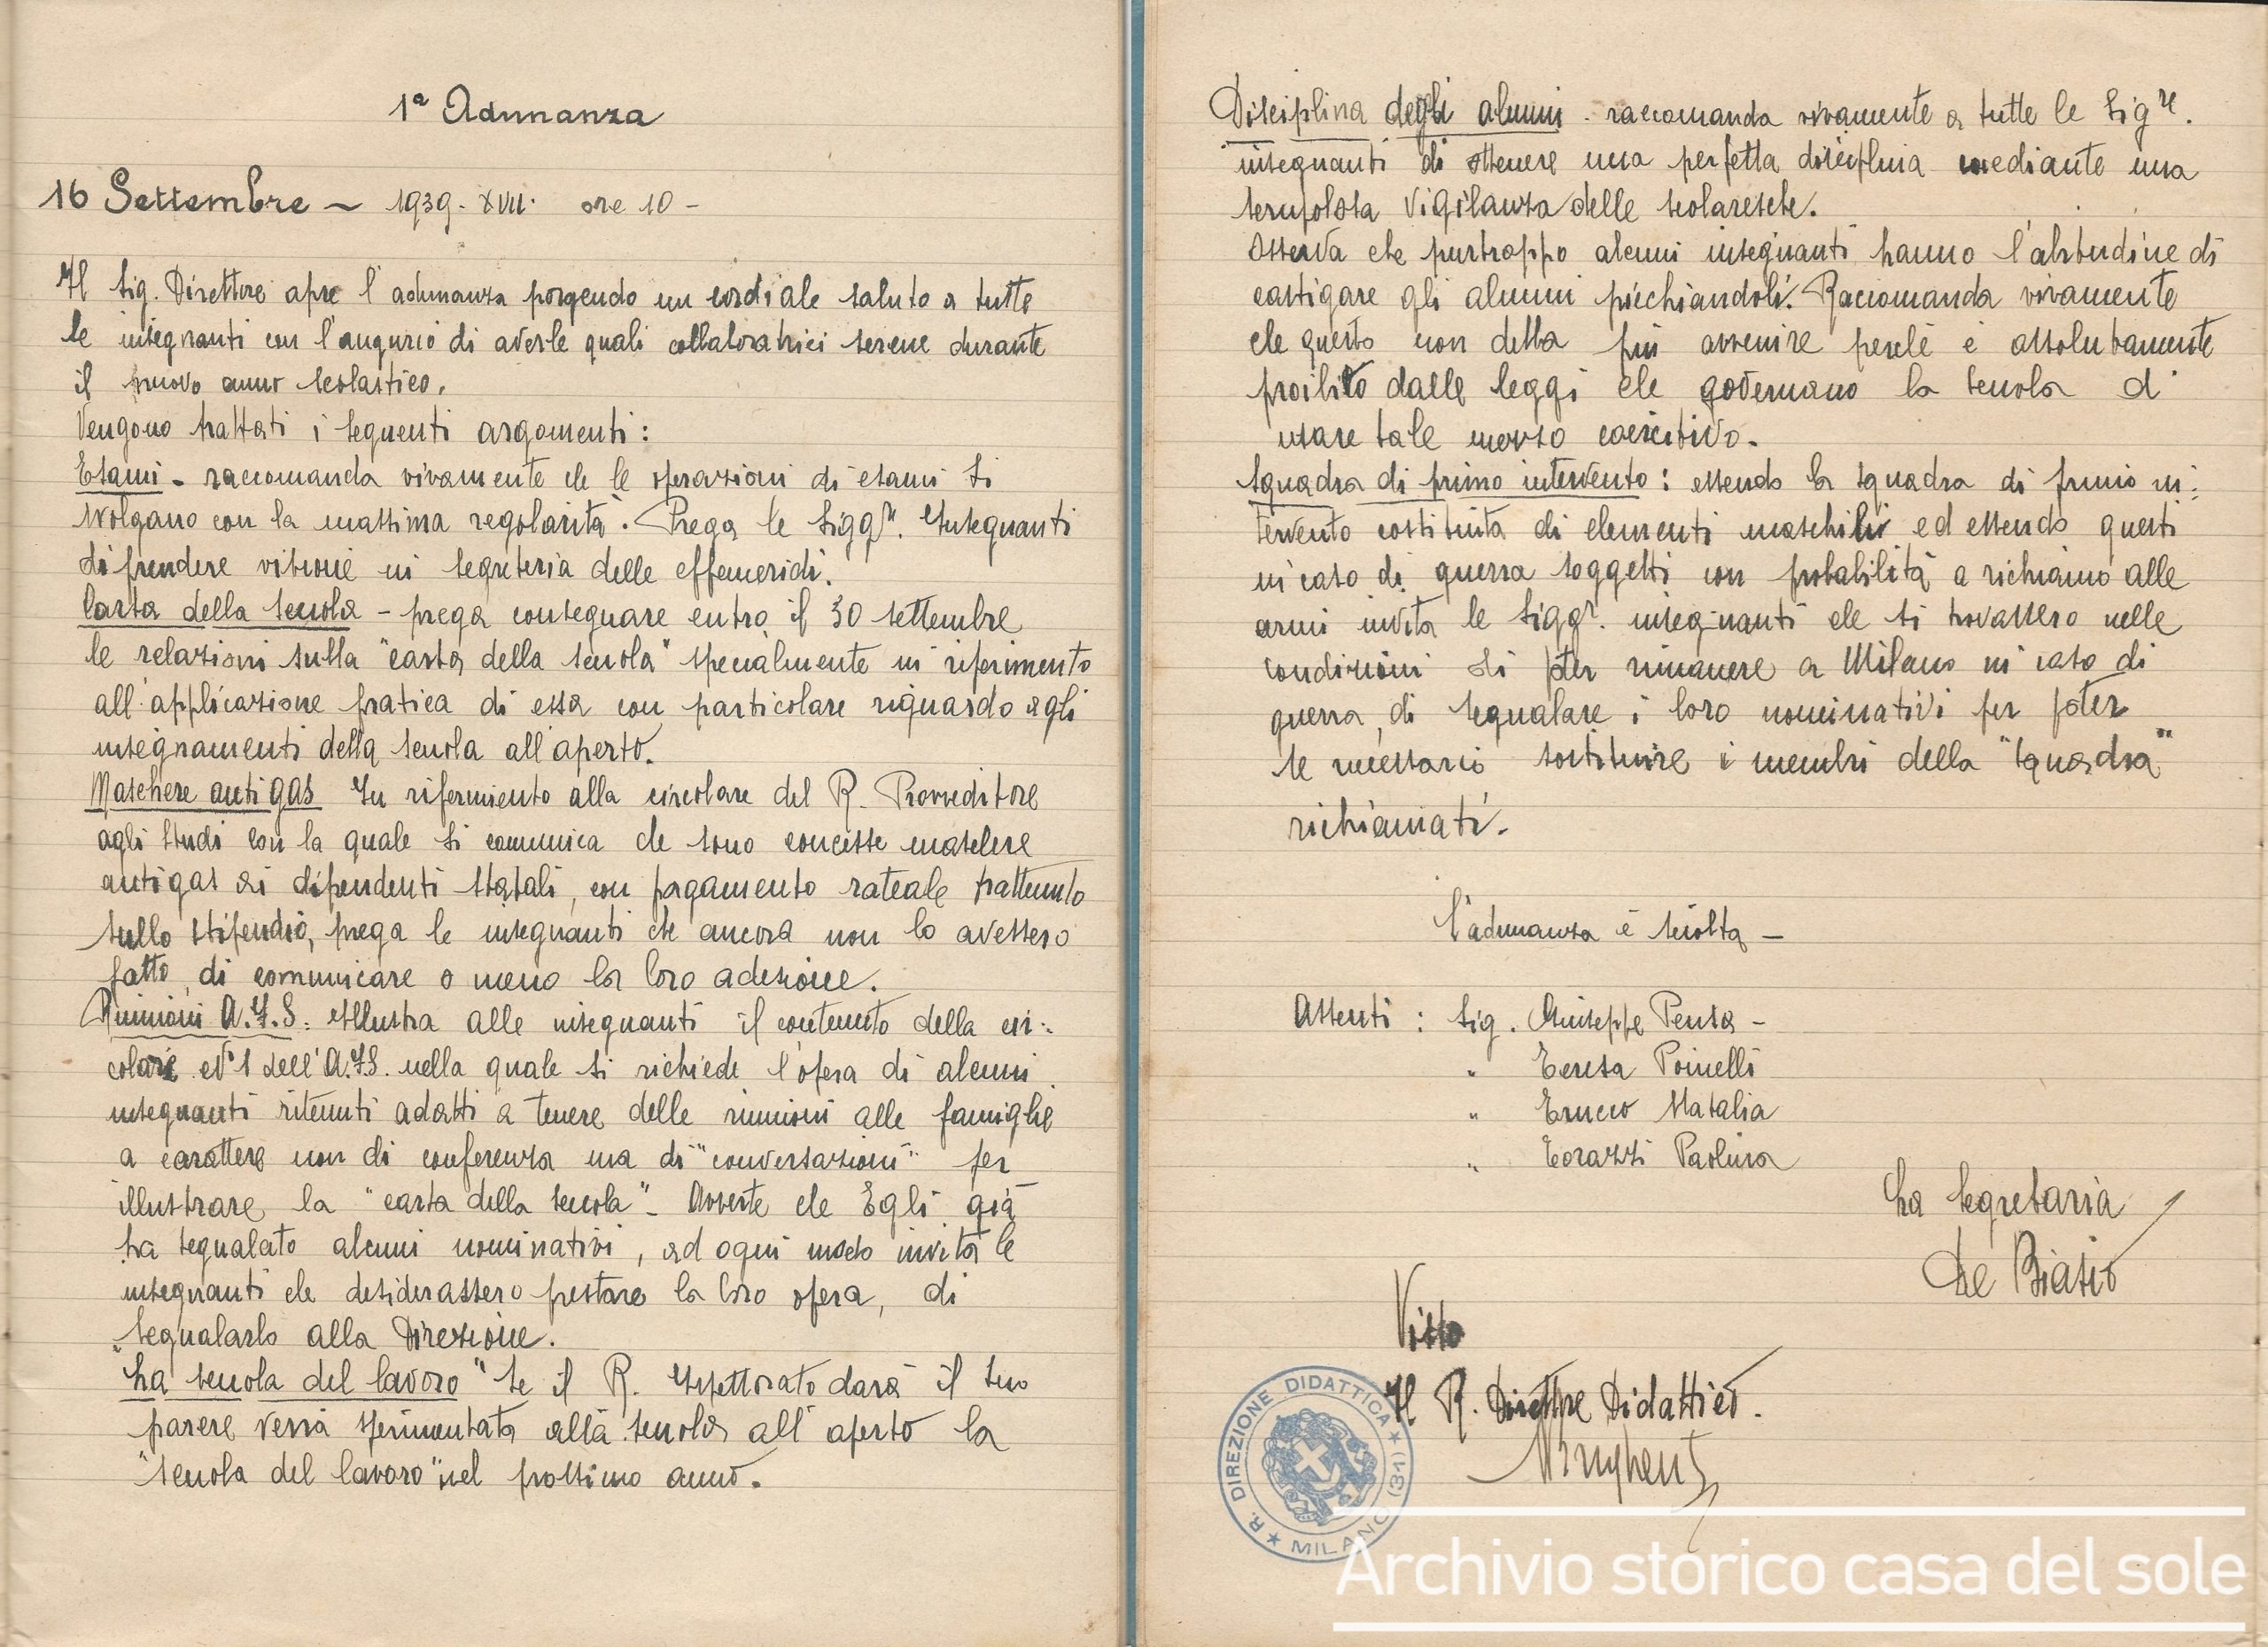 1ª Adunanza
16 Settembre ~ 1939-XVII. ore 10 -
Il Sig. Direttore apre l'adunanza porgendo un cordiale saluto a tutte
le insegnanti con l'augurio di averle quali collaboratrici serene durante
il nuovo anno scolastico.
Vengono trattati i seguenti argomenti:
Esami - raccomanda vivamente che le operazioni di esami si
svolgano con la massima regolarità. Prega le Sigg.ri Insegnanti
di prendere visione in segreteria delle effemeridi.
Carta della scuola - prega consegnare entro il 30 settembre
le relazioni sulla "carta della scuola" specialmente in riferimento
all'applicazione pratica di essa con particolare riguardo agli
insegnamenti della scuola all'aperto.
Maschere antigas In riferimento alla circolare del R. Provveditore
agli Studi con la quale si comunica che sono concesse maschere
antigas ai dipendenti statali, con pagamento rateale trattenuto
sullo stipendio, prega le insegnanti che ancora non lo avessero
fatto, di comunicare o meno la loro adesione.
Riunioni A.F.S: Illustra alle insegnanti il contenuto della cir-
colare N°1 dell'A.F.S. nella quale si richiede l'opera di alcuni
insegnanti ritenuti adatti a tenere delle riunioni alle famiglie
a carattere non di conferenza ma di "conversazioni" per
illustrare la "carta della scuola" - Avverte che Egli già
ha segnalato alcuni nominativi, ad ogni modo invita le
insegnanti che desiderassero prestare la loro opera, di
segnalarlo alla Direzione.
"La scuola del lavoro" Se il R. Ispettorato darà il suo
parere verrà sperimentata alla scuola all'aperto la
"scuola del lavoro" nel prossimo anno.
Disciplina degli alunni - raccomanda vivamente a tutte le Sig.re
insegnanti di ottenere una perfetta disciplina mediante una
scrupolosa vigilanza delle scolaresche.
Osserva che purtroppo alcuni insegnanti hanno l'abitudine di
castigare gli alunni picchiandoli. Raccomanda vivamente
che questo non debba più avvenire perchè è assolutamente
proibito dalle leggi che governano la scuola di
usare tale mezzo coercitivo.
Squadra di primo intervento: essendo la squadra di primo in-
tervento costituita di elementi maschili ed essendo questi
in caso di guerra soggetti con probabilità a richiamo alle
armi invita le Sigg.re insegnanti che si trovassero nelle
condizioni di poter rimanere a Milano in caso di
guerra, di segnalare i loro nominativi per poter
se necessario sostituire i membri della "Squadra"
richiamati.
L'adunanza è sciolta -
Assenti: Sig. Giuseppe Pensa -
" Teresa Poinelli
" Natalia
" Paolina
La Segretaria
De Biasio
Visto
Il R. Direttore Didattico.
R. DIREZIONE DIDATTICA ★ MILANO (31) ★
Archivio storico casa del sole